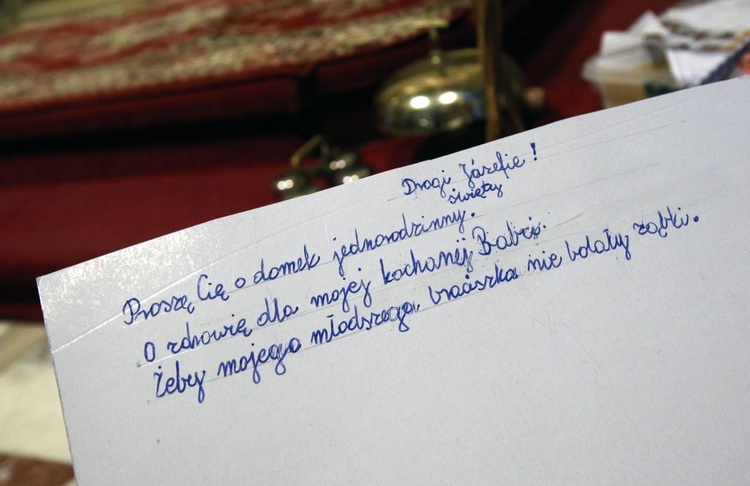 Drogi Józefie!
święty
Proszę Cię o domek jednorodzinny.
O zdrowię dla mojej kochanej Babci.
Żeby mojego młodszego braciszka nie bolały ząbki.